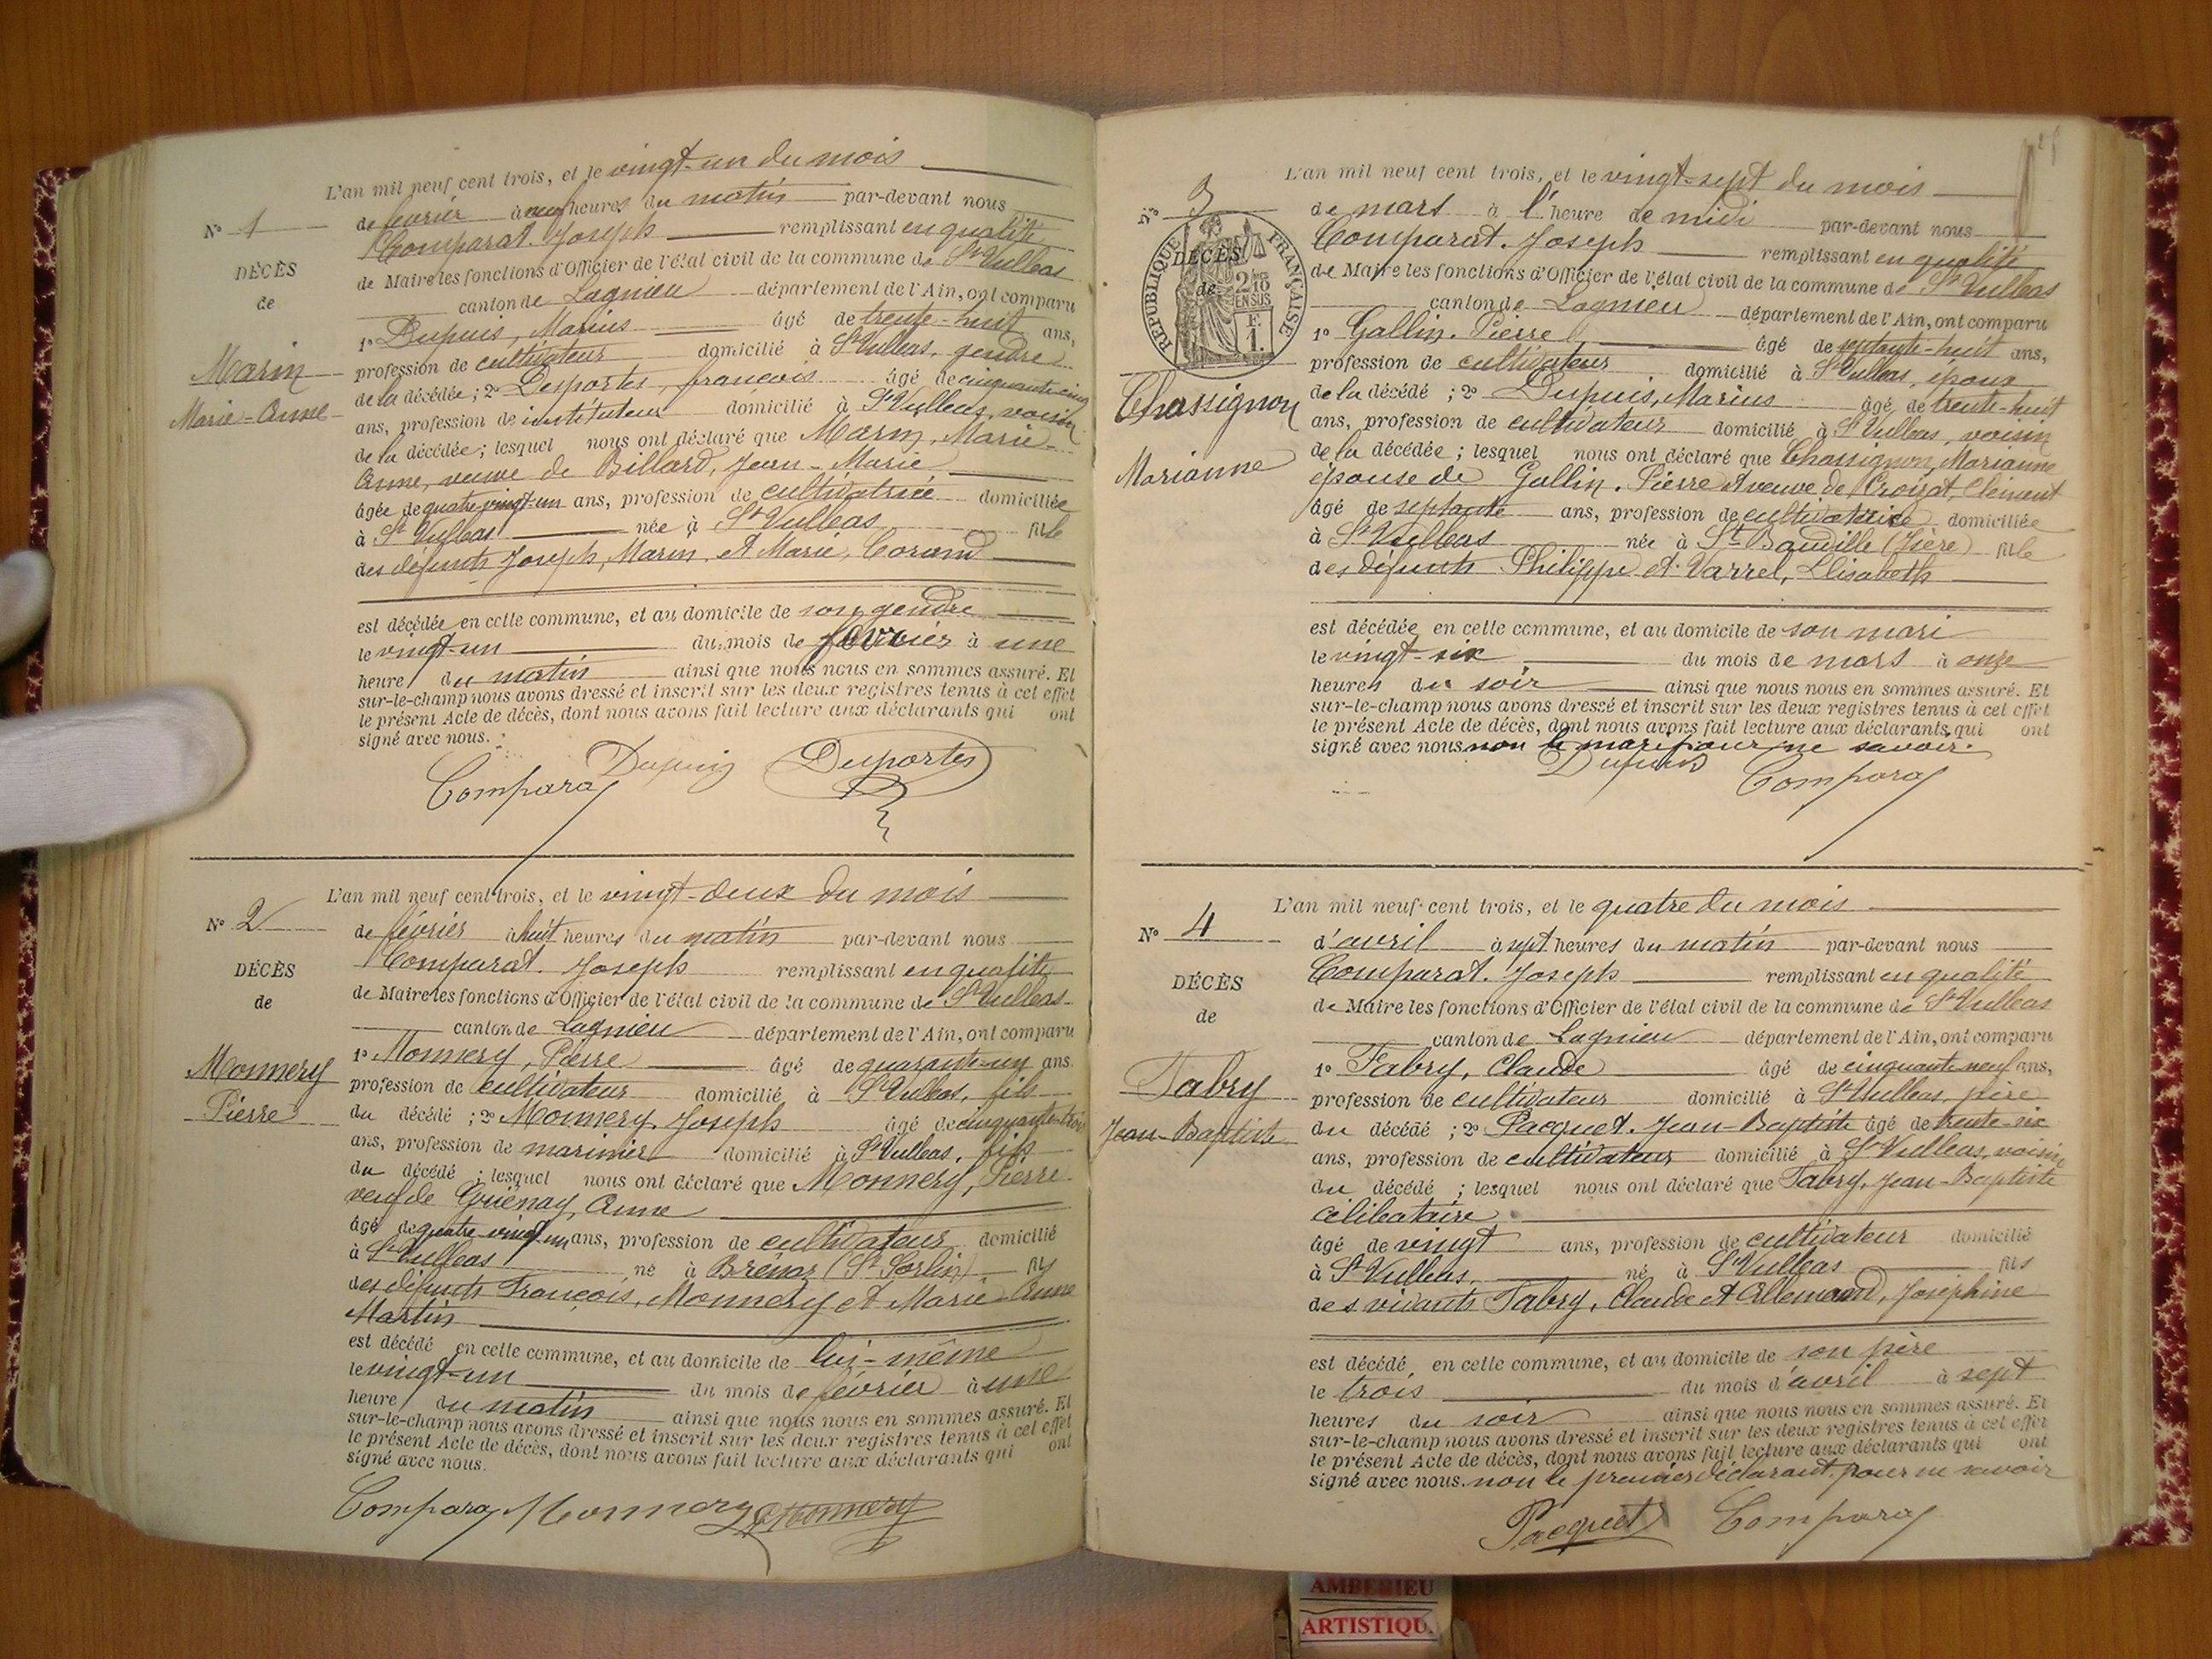 L'an mil neuf cent trois, et le vingt-un du mois
N° 1
de février à neuf heures du matin par-devant nous
Comparat. Joseph remplissant en qualité
DÉCÈS
de Maire les fonctions d'Officier de l'état civil de la commune de St Vulbas
de
canton de Lagnieu département de l'Ain, ont comparu
1° Dupuis, Marius âgé de trente-huit ans,
Marin
profession de cultivateur domicilié à St Vulbas, gendre
de la décédée ; 2° Desportes, françois âgé de cinquante-cinq
Marie-Anne
ans, profession de instituteur domicilié à St Vulbas, voisin
de la décédée ; lesquel nous ont déclaré que Marin, Marie-
Anne, veuve de Billard, Jean-Marie
âgée de quatre-vingt-un ans, profession de cultivatrice domiciliée
à St Vulbas née à St Vulbas fille
des défunts Joseph, Marin et Marie,
est décédée en cette commune, et au domicile de son gendre
le vingt-un du mois de février à une
heure du matin ainsi que nous nous en sommes assuré. Et
sur-le-champ nous avons dressé et inscrit sur les deux registres tenus à cet effet
le présent Acte de décès, dont nous avons fait lecture aux déclarants qui ont
signé avec nous.
Comparat Dupuis Desportes
L'an mil neuf cent trois, et le vingt-deux du mois
N° 2
de février à huit heures du matin par-devant nous
Comparat. Joseph remplissant en qualité
DÉCÈS
de Maire les fonctions d'Officier de l'état civil de la commune de St Vulbas
de
canton de Lagnieu département de l'Ain, ont comparu
1° Monnery, Pierre âgé de quarante-un ans
Monnery
profession de cultivateur domicilié à St Vulbas, fils
Pierre
du décédé ; 2° Monnery, Joseph âgé de cinquante-trois
ans, profession de marinier domicilié à St Vulbas, fils
du décédé ; lesquel nous ont déclaré que Monnery, Pierre
veuf de Guénay, Anne
âgé de quatre-vingt-un ans, profession de cultivateur domicilié
à St Vulbas né à Brénaz (St Sorlin) fils
des défunts François, Monnery et Marie-Anne
Martin
est décédé en cette commune, et au domicile de lui-même
le vingt-un du mois de février à une
heure du matin ainsi que nous nous en sommes assuré. Et
sur-le-champ nous avons dressé et inscrit sur les deux registres tenus à cet effet
le présent Acte de décès, dont nous avons fait lecture aux déclarants qui ont
signé avec nous.
Comparat Monnery Monnery
L'an mil neuf cent trois, et le vingt-sept du mois
N° 3
de mars à l'heure de midi par-devant nous
Comparat. Joseph remplissant en qualité
RÉPUBLIQUE FRANÇAISE
DÉCÈS
de
2/10 EN SUS
F. 1.
de Maire les fonctions d'Officier de l'état civil de la commune de St Vulbas
canton de Lagnieu département de l'Ain, ont comparu
1° Gallin. Pierre âgé de septante-huit ans,
profession de cultivateur domicilié à St Vulbas, époux
Chassignon
de la décédé ; 2° Dupuis, Marius âgé de trente-huit
ans, profession de cultivateur domicilié à St Vulbas, voisin
Marianne
de la décédée ; lesquel nous ont déclaré que Chassignon, Marianne
épouse de Gallin. Pierre et veuve de Croizat, Clément
âgé de septante ans, profession de cultivatrice domiciliée
à St Vulbas née à St Baudille (Isère) fille
des défunts Philippe et Varrel, Elisabeth
est décédée en cette commune, et au domicile de son mari
le vingt-six du mois de mars à onze
heures du soir ainsi que nous nous en sommes assuré. Et
sur-le-champ nous avons dressé et inscrit sur les deux registres tenus à cet effet
le présent Acte de décès, dont nous avons fait lecture aux déclarants qui ont
signé avec nous non le mari pour ne savoir.
Dupuis Comparat
L'an mil neuf cent trois, et le quatre du mois
N° 4
d'avril à sept heures du matin par-devant nous
Comparat. Joseph remplissant en qualité
DÉCÈS
de Maire les fonctions d'Officier de l'état civil de la commune de St Vulbas
de
canton de Lagnieu département de l'Ain, ont comparu
1° Fabry, Claude âgé de cinquante-neuf ans,
Fabry
profession de cultivateur domicilié à St Vulbas, père
Jean-Baptiste
du décédé ; 2° Pacquet. Jean-Baptiste âgé de trente-six
ans, profession de cultivateur domicilié à St Vulbas, voisin
du décédé ; lesquel nous ont déclaré que Fabry, Jean-Baptiste
célibataire
âgé de vingt ans, profession de cultivateur domicilié
à St Vulbas, né à St Vulbas fils
des vivants Fabry, Claude et Allemand, Joséphine
est décédé en cette commune, et au domicile de son père
le trois du mois d'avril à sept
heures du soir ainsi que nous nous en sommes assuré. Et
sur-le-champ nous avons dressé et inscrit sur les deux registres tenus à cet effet
le présent Acte de décès, dont nous avons fait lecture aux déclarants qui ont
signé avec nous. non le premier déclarant pour ne savoir
Pacquet Comparat
AMBERIEU
ARTISTIQU